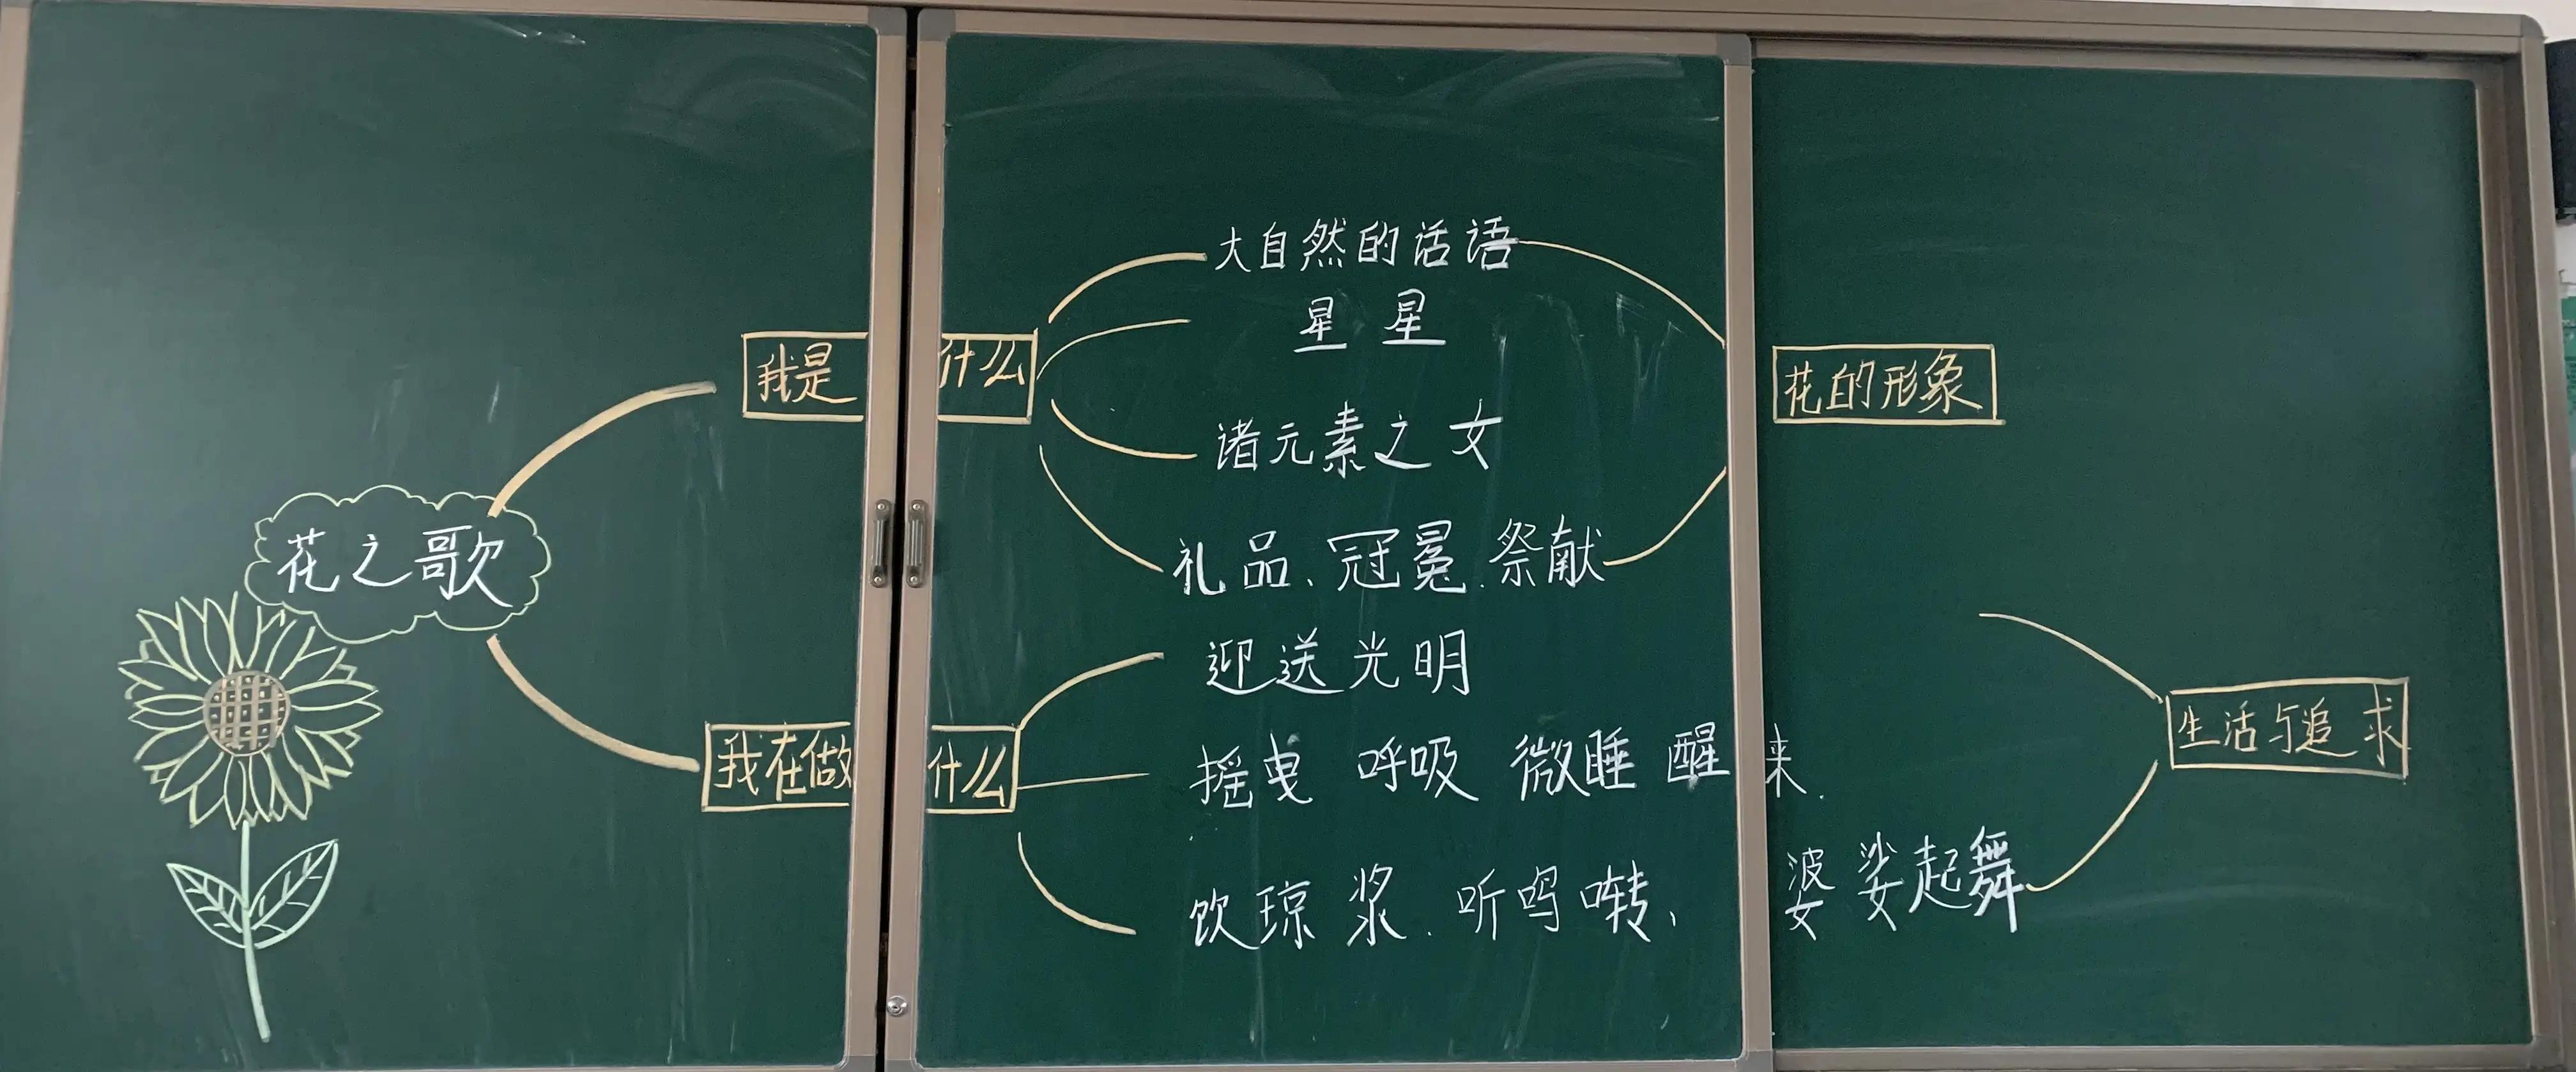 花之歌
我是什么
大自然的话语
星星
诸元素之女
礼品、冠冕、祭献
花的形象
我在做什么
迎送光明
摇曳 呼吸 微睡 醒来.
饮琼浆、听鸣啭、婆娑起舞
生活与追求